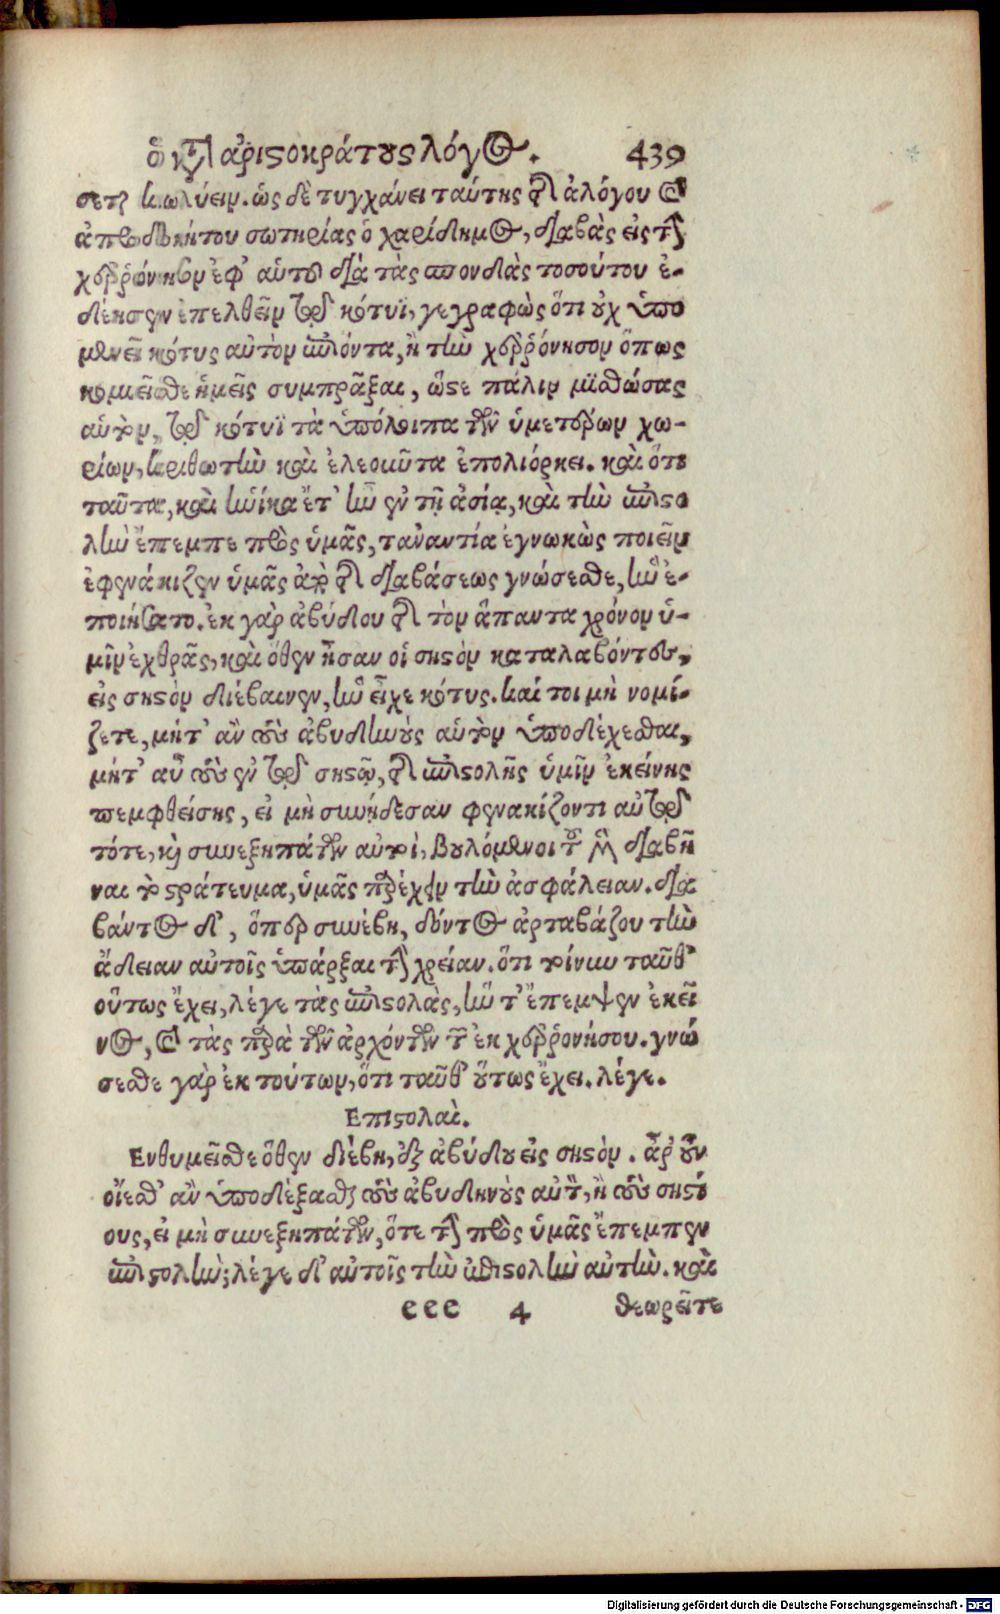 ὁ κτ̃ ἀριστοκράτους λόγος. 439
σεται κωλύειν. ὡς δὲ τυγχάνει ταύτης τῆς ἀλόγου καὶ
ἀπροσδοκήτου σωτηρίας ὁ χαρίδημος, διαβὰς εἰς τὴν
χερρόνησον ἐφ' αὑτοῦ διὰ τὰς σπονδὰς τοσούτου ἐ-
δέησεν ἐπελθεῖν τῷ κότυϊ, γεγραφὼς ὅτι οὐχ ὑπο
μενεῖ κότυς αὐτὸν ἐπιόντα, ἢ τὴν χερρόνησον ὅπως
κομιεῖσθε ἡμεῖς συμπρᾶξαι, ὥστε πάλιν μϊσθώσας
αὑτὸν, τῷ κότυϊ τὰ ὑπόλοιπα τῶν ὑμετέρων χω-
ρίων, κριθωτὴν καὶ ἐλεοῦντα ἐπολιόρκει. καὶ ὅτι
ταῦτα, καὶ ἡνίκα ἔτ' ἦν ἐν τῇ ἀσίᾳ, καὶ τὴν ἐπιστο
λὴν ἔπεμπε πρὸς ὑμᾶς, τἀναντία ἐγνωκὼς ποιεῖν
ἐφενάκιζεν ὑμᾶς ἀπὸ τῆς διαβάσεως γνώσεσθε, ἣν ἐ-
ποιήσατο. ἐκ γὰρ ἀβύδου τῆς τὸν ἅπαντα χρόνον ὑ-
μῖν ἐχθρᾶς, καὶ ὅθεν ἦσαν οἱ σηστὸν καταλαβόντες,
εἰς σηστὸν διέβαινεν, ἣν εἶχε κότυς. καί τοι μὴ νομί-
ζετε, μήτ' ἂν τοὺς ἀβυδηνοὺς αὑτὸν ὑποδέχεσθαι,
μήτ' αὖ τοὺς ἐν τῷ σηστῷ, τῆς ἐπιστολῆς ὑμῖν ἐκείνης
πεμφθείσης, εἰ μὴ συνῄδεσαν φενακίζοντι αὐτῷ
τότε, καὶ συνεξηπάτων αὐτοὶ, βουλόμενοι τοῦ μὲν διαβῆ
ναι τὸ στράτευμα, ὑμᾶς παρέχειν τὴν ἀσφάλειαν. δια
βάντος δ', ὅπερ συνέβη, δόντος ἀρταβάζου τὴν
ἄδειαν αὐτοῖς ὑπάρξαι τὴν χρείαν. ὅτι τοίνυν ταῦθ'
οὕτως ἔχει, λέγε τὰς ἐπιστολὰς, ἥν τ' ἔπεμψεν ἐκεῖ
νος, καὶ τὰς παρὰ τῶν ἀρχόντων τῶν ἐκ χερρονήσου. γνώ
σεσθε γὰρ ἐκ τούτων, ὅτι ταῦθ' οὕτως ἔχει. λέγε.
Επιστολαὶ.
Ενθυμεῖσθε ὅθεν διέβη, ἐξ ἀβύδου εἰς σηστὸν. ἆρ' οὖν
οἴεσθ' ἂν ὑποδέξασθαι τοὺς ἀβυδηνοὺς αὐτὸν, ἢ τοὺς σηστί
ους, εἰ μὴ συνεξηπάτων, ὅτε τὴν πρὸς ὑμᾶς ἔπεμπεν
ἐπιστολὴν; λέγε δ' αὐτοῖς τὴν ἐπιστολὴν αὐτὴν. καὶ
eee 4 θεωρεῖτε
Digitalisierung gefördert durch die Deutsche Forschungsgemeinschaft - DFG